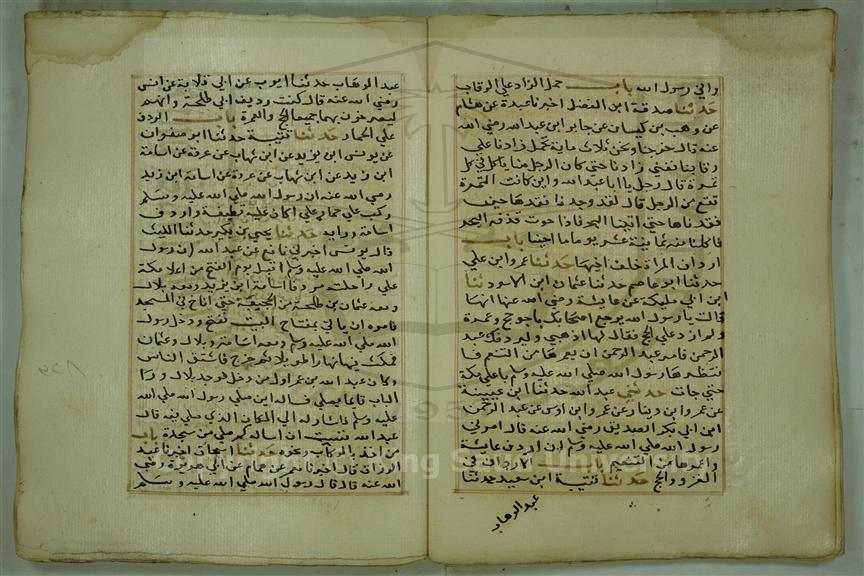 واني رسول الله باب حمل الزاد علي الرقاب
حدثنا صدقة ابن الفضل اخبرنا عبدة عن هشام
عن وهب بن كيسان عن جابر ابن عبد الله رضي الله
عنه قال خرجنا ونحن ثلاث ماية نحمل زادنا علي
رقابنا ففني زادنا حتي كان الرجل منا ياكل في كل
تمرة قال رجل يا ابا عبد الله واين كانت التمرة
تقع من الرجل قال لقد وجدنا فقدها حين
فقدناها حتي اتينا البحر فاذا حوت قذفه البحر
فاكلنا منه ثمانية عشر يوما ما احببنا باب
ارداف المراة خلف اخيها حدثنا عمرو ابن علي
حدثنا ابو عاصم حدثنا عثمان ابن الاسود ثنا
ابن ابي مليكة عن عايشة رضي الله عنها انها
قالت يا رسول الله يرجع اصحابك باجر حج وعمرة
ولم ازد علي الحج فقال لها اذهبي وليردفك عبد
الرحمن فامر عبد الرحمن ان يعمرها من التنعيم فا
نتظرها رسول الله صلي الله عليه وسلم باعلي مكة
حتي جات حدثني عبد الله حدثنا ابن عيينة
عن عمرو ابن دينار عن عمرو ابن اوس عن عبد الرحمن
ابن ابي بكر الصديق رضي الله عنه قال امرني
رسول الله صلي الله عليه وسلم ان اردف عايشة
واعمرها من التنعيم باب الارتداف في
الغزو والحج حدثنا قتيبة ابن سعيد حدثنا
عبد الوهاب
عبد الوهاب حدثنا ايوب عن ابي قلابة عن انس
رضي الله عنه قال كنت رديف ابي طلحة وانهم
ليصرخون بهما جميعا الحج والعمرة باب الردف
علي الحمار حدثنا قتيبة حدثنا ابو صفوان
عن يونس ابن يزيد عن ابن شهاب عن عروة عن اسامة
ابن زيد عن ابن شهاب عن عروة عن اسامة ابن زيد
رضي الله عنه ان رسول الله صلي الله عليه وسلم
ركب علي حمار علي اكاف عليه قطيفة واردف
اسامة وراءه حدثنا يحيي بن بكير حدثنا الليث
قال يونس اخبرني نافع عن عبد الله ان رسول
الله صلي الله عليه وسلم اقبل يوم الفتح من اعلا مكة
علي راحلته مردفا اسامة ابن زيد ومعه بلال
ومعه عثمان بن طلحة من الحجبة حتي اناخ في المسجد
فامره ان ياتي بمفتاح البيت ففتح ودخل رسول
الله صلي الله عليه وسلم ومعه اسامة وبلال وعثمان
فمكث فيها نهارا طويلا ثم خرج فاستبق الناس
وكان عبد الله بن عمر اول من دخل فوجد بلال ورا
الباب قايما يصلي فساله اين صلي رسول الله صلي الله
عليه وسلم فاشار له الي المكان الذي صلي فيه قال
عبد الله فنسيت ان اساله كم صلي من سجدة باب
من اخذ بالركاب ونحوه حدثنا اسحاق اخبرنا عبد
الرزاق قال اخبرنا معمر عن همام عن ابي هريرة رضي
الله عنه قال قال رسول الله صلي الله عليه وسلم